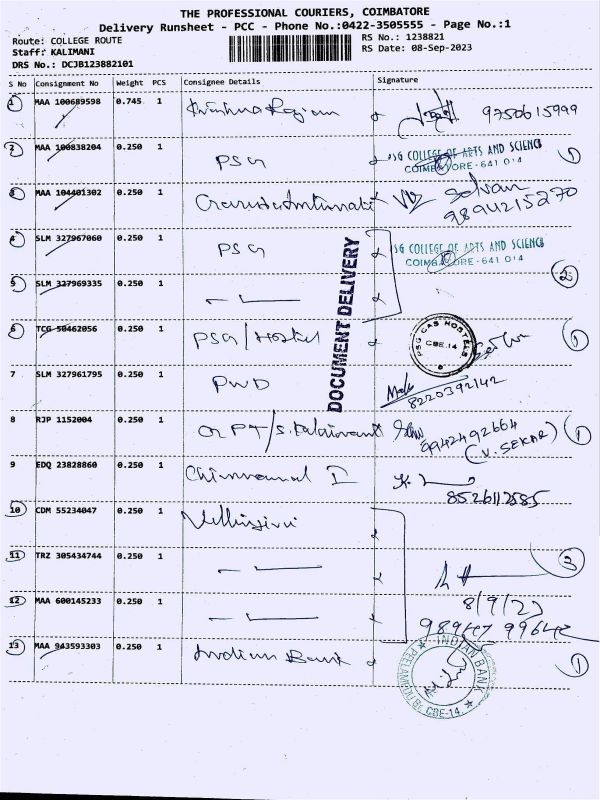 THE PROFESSIONAL COURIERS, COIMBATORE
Delivery Runsheet - PCC - Phone No.:0422-3505555 - Page No.:1
Route: COLLEGE ROUTE
Staff: KALIMANI
DRS No.: DCJB123882101
RS No.: 1238821
RS Date: 08-Sep-2023
S No Consignment No Weight PCS Consignee Details Signature
1 MAA 100689598 0.745 1 9750615999
2 MAA 100838204 0.250 1 PSG PSG COLLEGE OF ARTS AND SCIENCE
COIMBATORE-641 014 1
3 MAA 104401302 0.250 1 Selvan
9894215270
4 SLM 327967060 0.250 1 PSG PSG COLLEGE OF ARTS AND SCIENCE
COIMBATORE-641 014
2
5 SLM 327969335 0.250 1
DOCUMENT DELIVERY
6 TCG 50462056 0.250 1 PSG/Hostel PSG CAS HOSTELS CBE.14 1
7 SLM 327961795 0.250 1 PWD
8220392142
8 RJP 1152004 0.250 1 9942492664
(V. SEKAR) 1
9 EDQ 23828860 0.250 1
10 CDM 55234047 0.250 1
11 TRZ 305434744 0.250 1 3
12 MAA 600145233 0.250 1 8/9/23
98947 99642
13 MAA 943593303 0.250 1 Indian Bank INDIAN BANK CBE-14 1